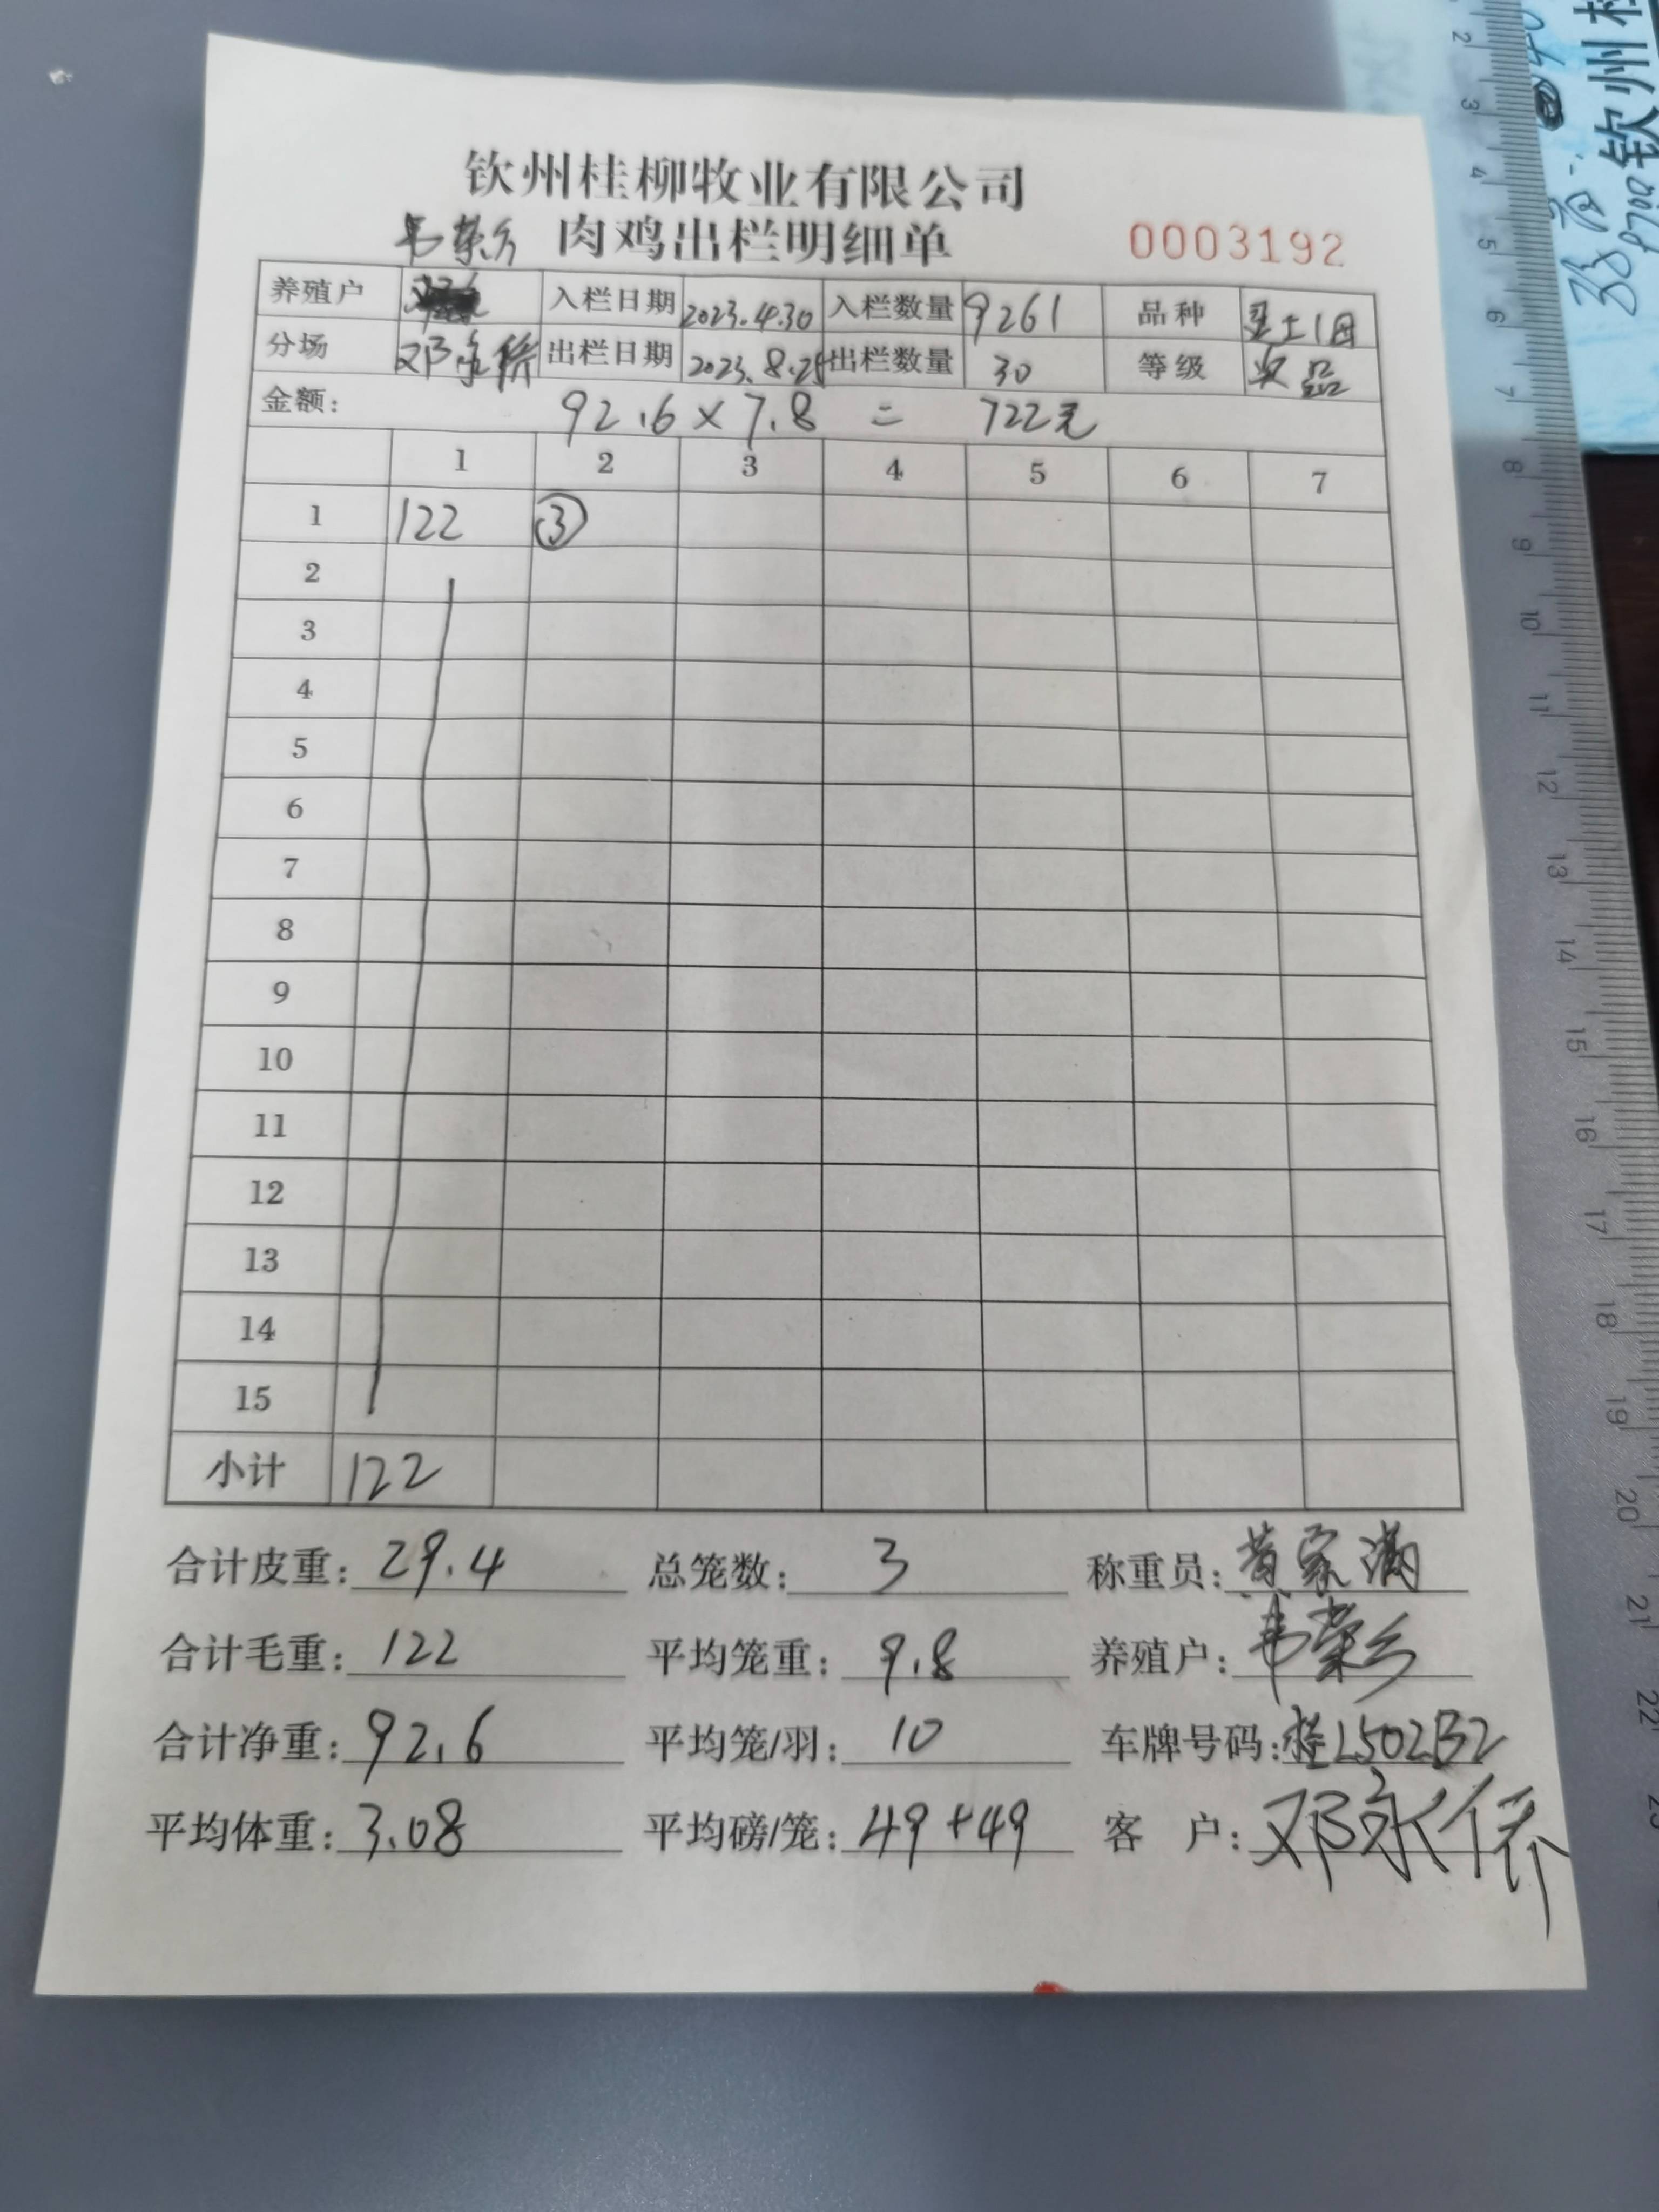 钦州桂柳牧业有限公司
韦荣乡 肉鸡出栏明细单 0003192
养殖户 入栏日期 2023.4.30 入栏数量 9261 品种
分场 出栏日期 2023.8.25 出栏数量 30 等级 次品
金额: 92.6×7.8 = 722元
1 2 3 4 5 6 7
1 122 ③
2
3
4
5
6
7
8
9
10
11
12
13
14
15
小计 122
合计皮重: 29.4 总笼数: 3 称重员: 黄家满
合计毛重: 122 平均笼重: 9.8 养殖户: 韦荣乡
合计净重: 92.6 平均笼/羽: 10 车牌号码: 桂L502B2
平均体重: 3.08 平均磅/笼: 49+49 客 户: 邓永侨
钦州